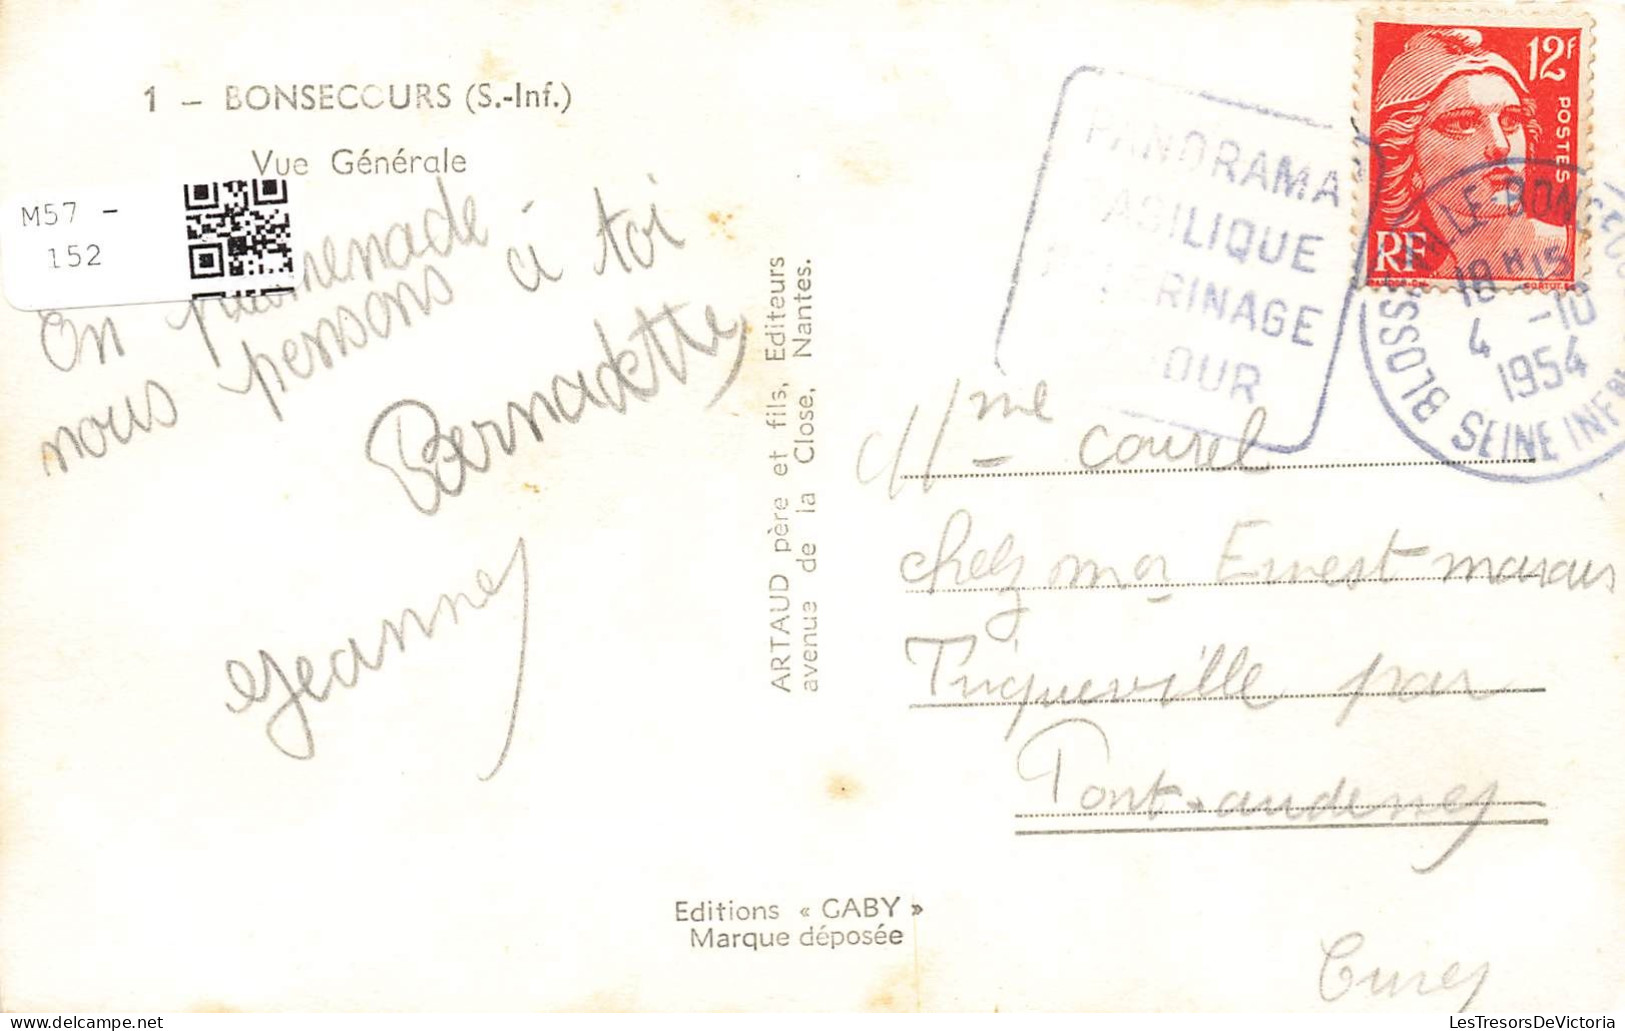 1 - BONSECOURS (S.-Inf.)
Vue Générale
M57 -
152
En promenade
nous pensons à toi
Bernadette
Jeanne
ARTAUD père et fils, Editeurs
avenue de la Close, Nantes.
Editions « GABY »
Marque déposée
PANORAMA
BASILIQUE
RINAGE
12F
POSTES
RF
BLOSSEVILLE-BONSECOURS
18H15
4 -10
1954
SEINE INFRE
Mme Courel
chez mr Ernest marais
Triqueville par
Pont-audemer
Eure
LesTresorsDeVictoria